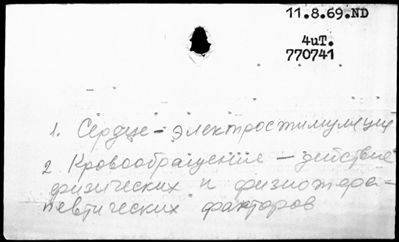 11.8.69.ND
4иТ.
770741
1. Сердце - электростимуляция
2. Кровообращение — действие
физических и физиотера-
певтических факторов